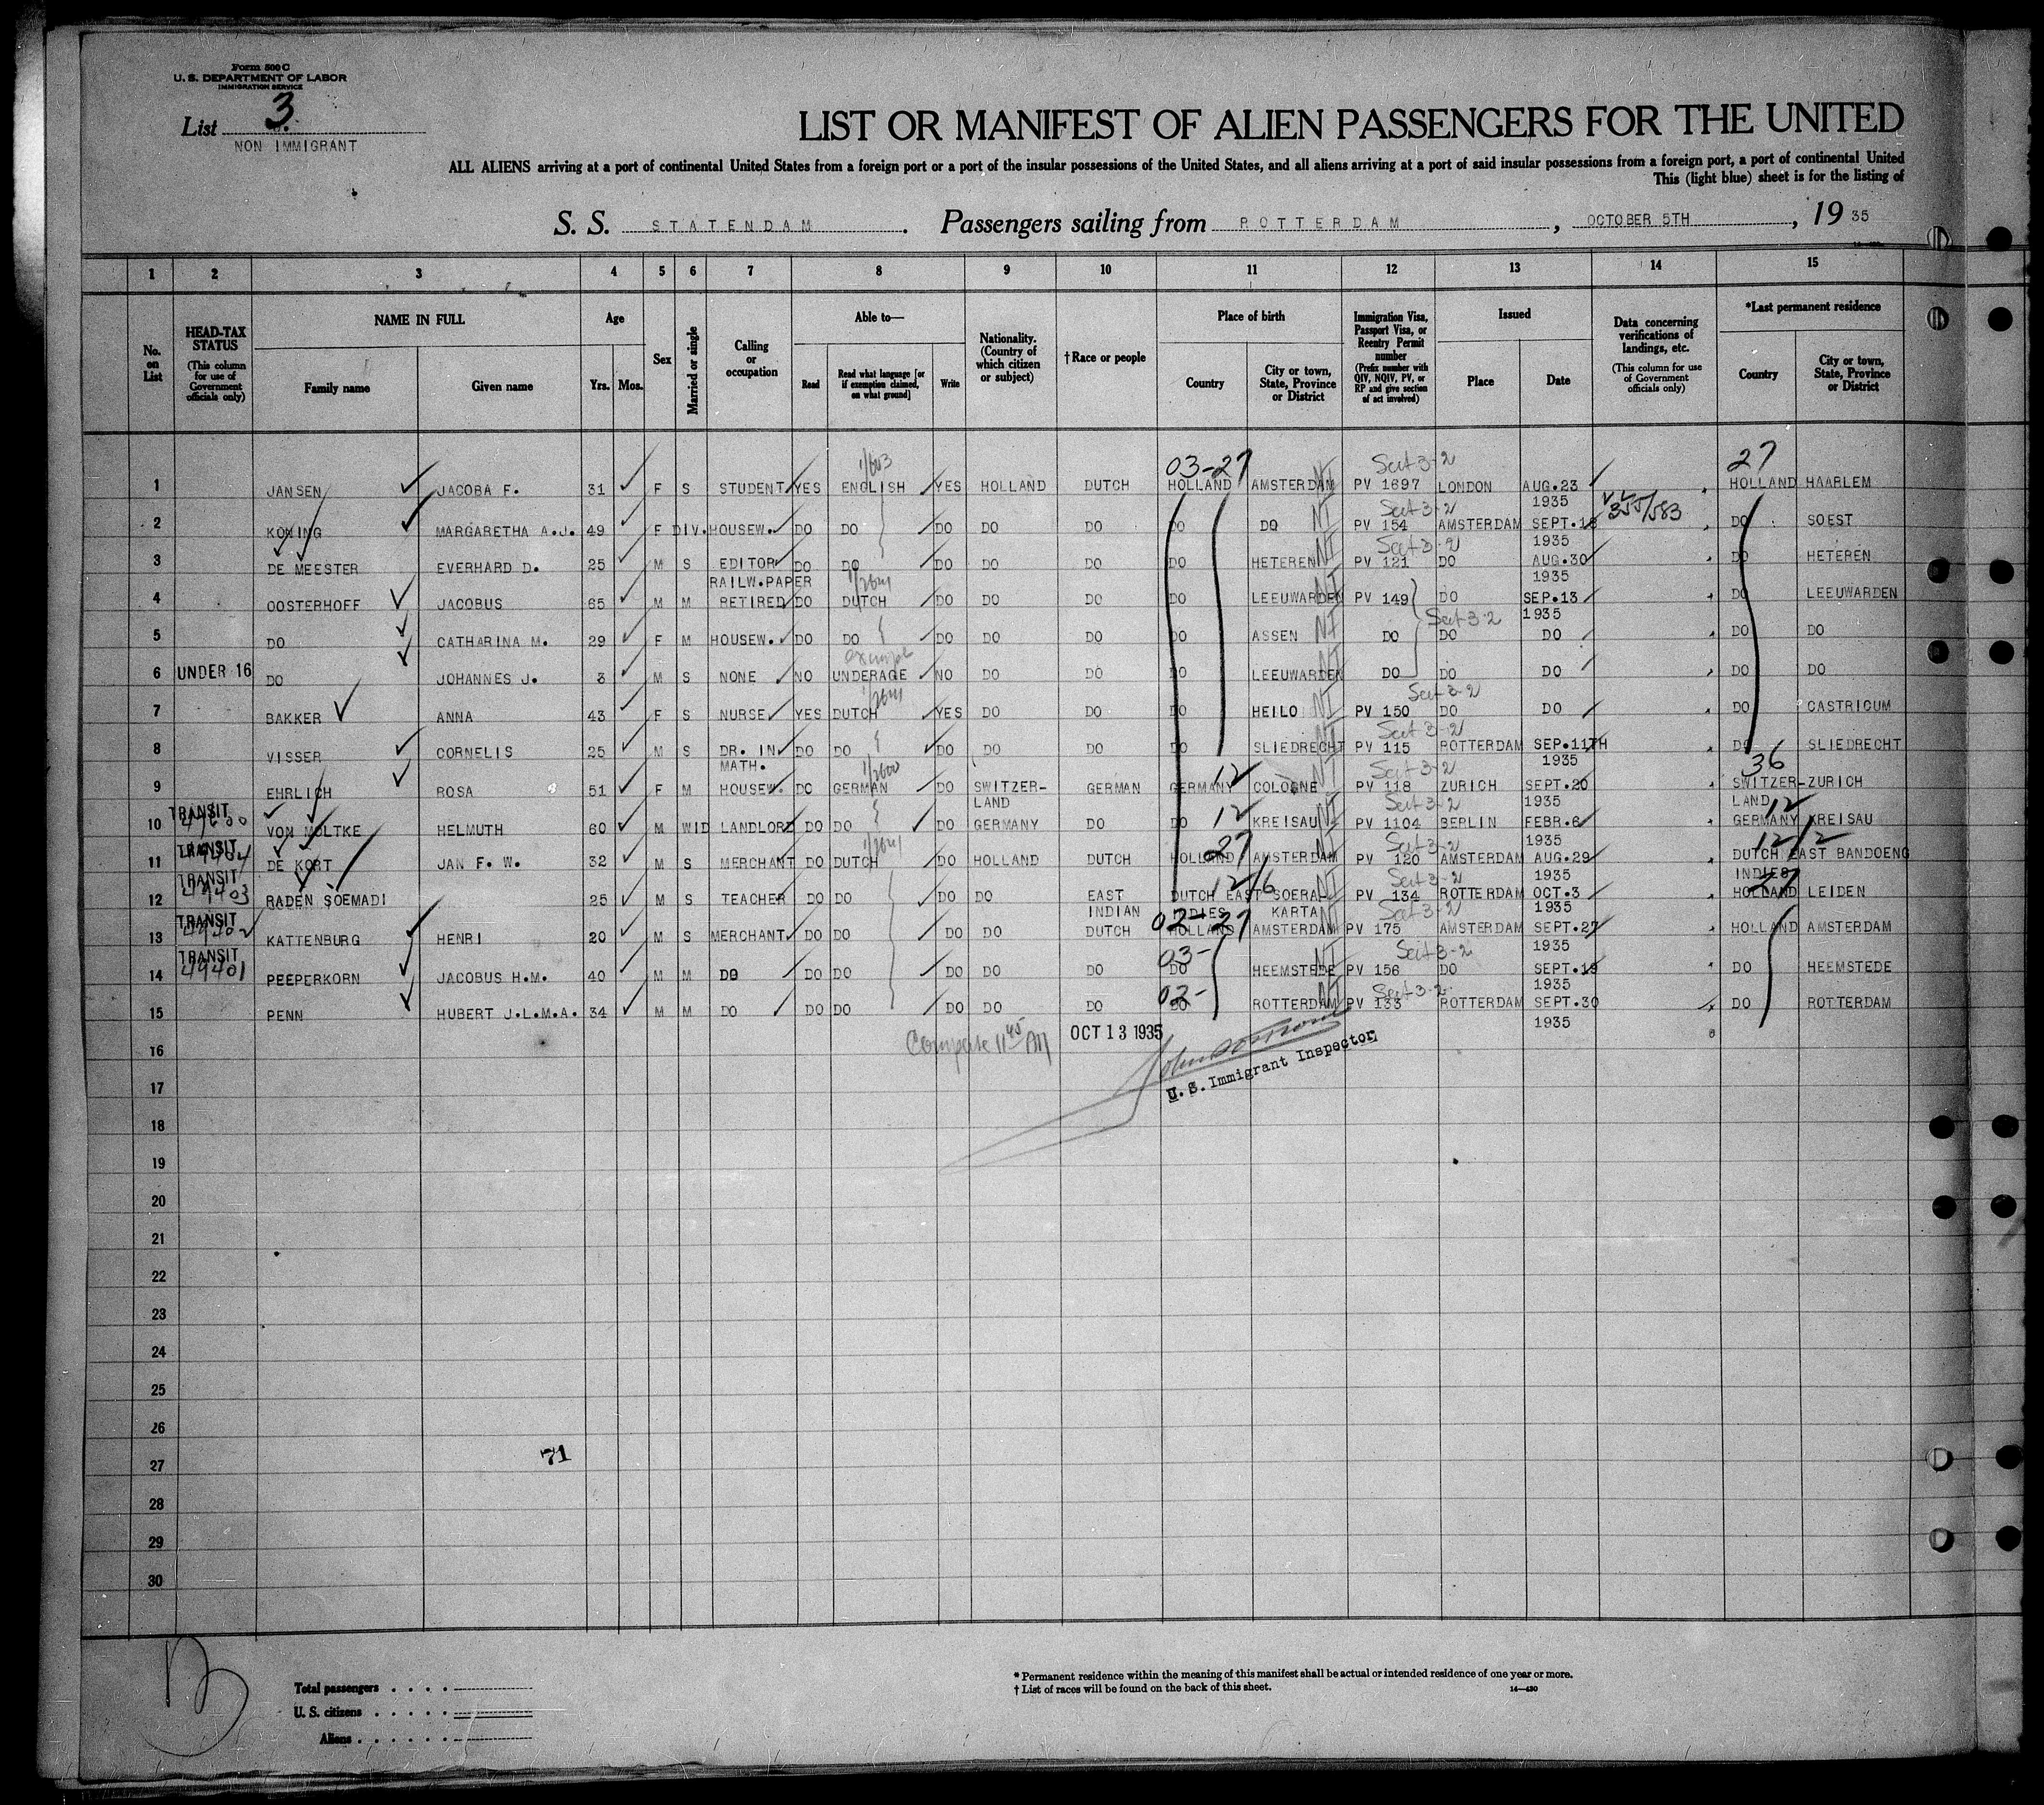 Form 500 C
U. S. DEPARTMENT OF LABOR
IMMIGRATION SERVICE
List 3.
NON IMMIGRANT
LIST OR MANIFEST OF ALIEN PASSENGERS FOR THE UNITED
ALL ALIENS arriving at a port of continental United States from a foreign port or a port of the insular possessions of the United States, and all aliens arriving at a port of said insular possessions from a foreign port, a port of continental United
This (light blue) sheet is for the listing of
S. S. STATENDAM. Passengers sailing from ROTTERDAM, OCTOBER 5TH, 19 35
1 2 3 4 5 6 7 8 9 10 11 12 13 14 15
No. on List
HEAD-TAX STATUS (This column for use of Government officials only)
NAME IN FULL
Family name Given name
Age
Yrs. Mos.
Sex
Married or single
Calling or occupation
Able to—
Read Read what language [or if exemption claimed, on what ground] Write
Nationality. (Country of which citizen or subject)
†Race or people
Place of birth
Country City or town, State, Province or District
Immigration Visa, Passport Visa, or Reentry Permit number (Prefix number with QIV, NQIV, PV, or RP and give section of act involved)
Issued
Place Date
Data concerning verifications of landings, etc. (This column for use of Government officials only)
*Last permanent residence
Country City or town, State, Province or District
03-27 27
1 JANSEN JACOBA F. 31 F S STUDENT YES ENGLISH YES HOLLAND DUTCH HOLLAND AMSTERDAM PV 1697 LONDON AUG.23 1935 HOLLAND HAARLEM
2 KONING MARGARETHA A.J. 49 F DIV. HOUSEW. DO DO DO DO DO DO DO PV 154 AMSTERDAM SEPT.18 1935 DO SOEST
3 DE MEESTER EVERHARD D. 25 M S EDITOR RAILW.PAPER DO DO DO DO DO DO HETEREN PV 121 DO AUG.30 1935 DO HETEREN
4 OOSTERHOFF JACOBUS 65 M M RETIRED DO DUTCH DO DO DO DO LEEUWARDEN PV 149 DO SEP.13 1935 DO LEEUWARDEN
5 DO CATHARINA M. 29 F M HOUSEW. DO DO DO DO DO DO ASSEN DO DO DO DO DO
6 UNDER 16 DO JOHANNES J. 3 M S NONE NO UNDERAGE NO DO DO DO LEEUWARDEN DO DO DO DO DO
7 BAKKER ANNA 43 F S NURSE YES DUTCH YES DO DO DO HEILO PV 150 DO DO DO CASTRICUM
8 VISSER CORNELIS 25 M S DR. IN MATH. DO DO DO DO DO DO SLIEDRECHT PV 115 ROTTERDAM SEP.11TH 1935 DO SLIEDRECHT
9 EHRLICH ROSA 51 F M HOUSEW. DO GERMAN DO SWITZER-LAND GERMAN GERMANY COLOGNE PV 118 ZURICH SEPT.20 1935 SWITZER-LAND ZURICH
10 TRANSIT VON MOLTKE HELMUTH 60 M WID LANDLORD DO DO DO GERMANY DO DO KREISAU PV 1104 BERLIN FEBR.6 1935 GERMANY KREISAU
11 TRANSIT 49404 DE KORT JAN F. W. 32 M S MERCHANT DO DUTCH DO HOLLAND DUTCH HOLLAND AMSTERDAM PV 120 AMSTERDAM AUG.29 1935 DUTCH EAST INDIES BANDOENG
12 TRANSIT 49403 RADEN SOEMADI 25 M S TEACHER DO DO DO DO EAST INDIAN DUTCH EAST INDIES SOERA-KARTA PV 134 ROTTERDAM OCT.3 1935 HOLLAND LEIDEN
13 TRANSIT 49402 KATTENBURG HENRI 20 M S MERCHANT DO DO DO DO DUTCH HOLLAND AMSTERDAM PV 175 AMSTERDAM SEPT.27 1935 HOLLAND AMSTERDAM
14 TRANSIT 49401 PEEPERKORN JACOBUS H.M. 40 M M DO DO DO DO DO DO DO HEEMSTEDE PV 156 DO SEPT.19 1935 DO HEEMSTEDE
15 PENN HUBERT J.L.M.A. 34 M M DO DO DO DO DO DO DO ROTTERDAM PV 133 ROTTERDAM SEPT.30 1935 DO ROTTERDAM
16 11 45 AM OCT 13 1935
U. S. Immigrant Inspector
17
18
19
20
21
22
23
24
25
26
27
71
28
29
30
Total passengers
U. S. citizens
Aliens
* Permanent residence within the meaning of this manifest shall be actual or intended residence of one year or more.
† List of races will be found on the back of this sheet.
14—430